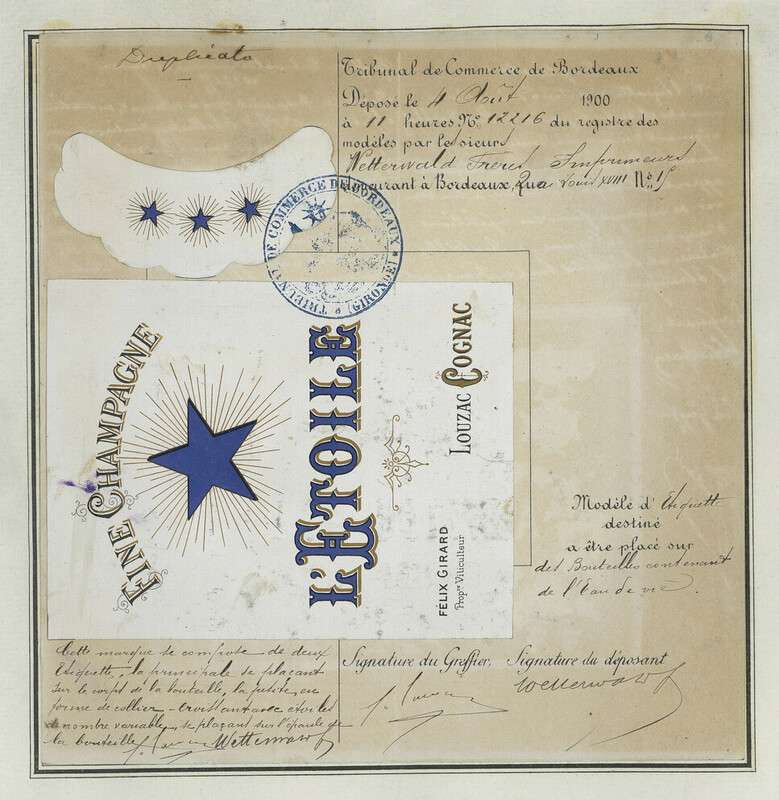 Duplicata
Tribunal de Commerce de Bordeaux
Déposé le 4 Août 1900
à 11 heures No. 12216 du registre des
modèles par le sieurs
Wetterwald Frères Imprimeurs
demeurant à Bordeaux, Quai Louis XVIII No. 15
TRIBUNAL DE COMMERCE DE BORDEAUX
(GIRONDE)
FINE CHAMPAGNE
L'ETOILE
LOUZAC COGNAC
FÉLIX GIRARD
Propre Viticulteur
Modèle d'Etiquette
destiné
a être placé sur
des Bouteilles contenant
de l'Eau de vie.
Cette marque se compose de deux
Etiquette, la principale se plaçant
sur le corps de la bouteille, la petite, en
forme de collier - croissant avec étoiles
de nombre variable, se plaçant sur l'épaule de
la bouteille Wetterwald
Signature du Greffier. Signature du déposant
Wetterwald